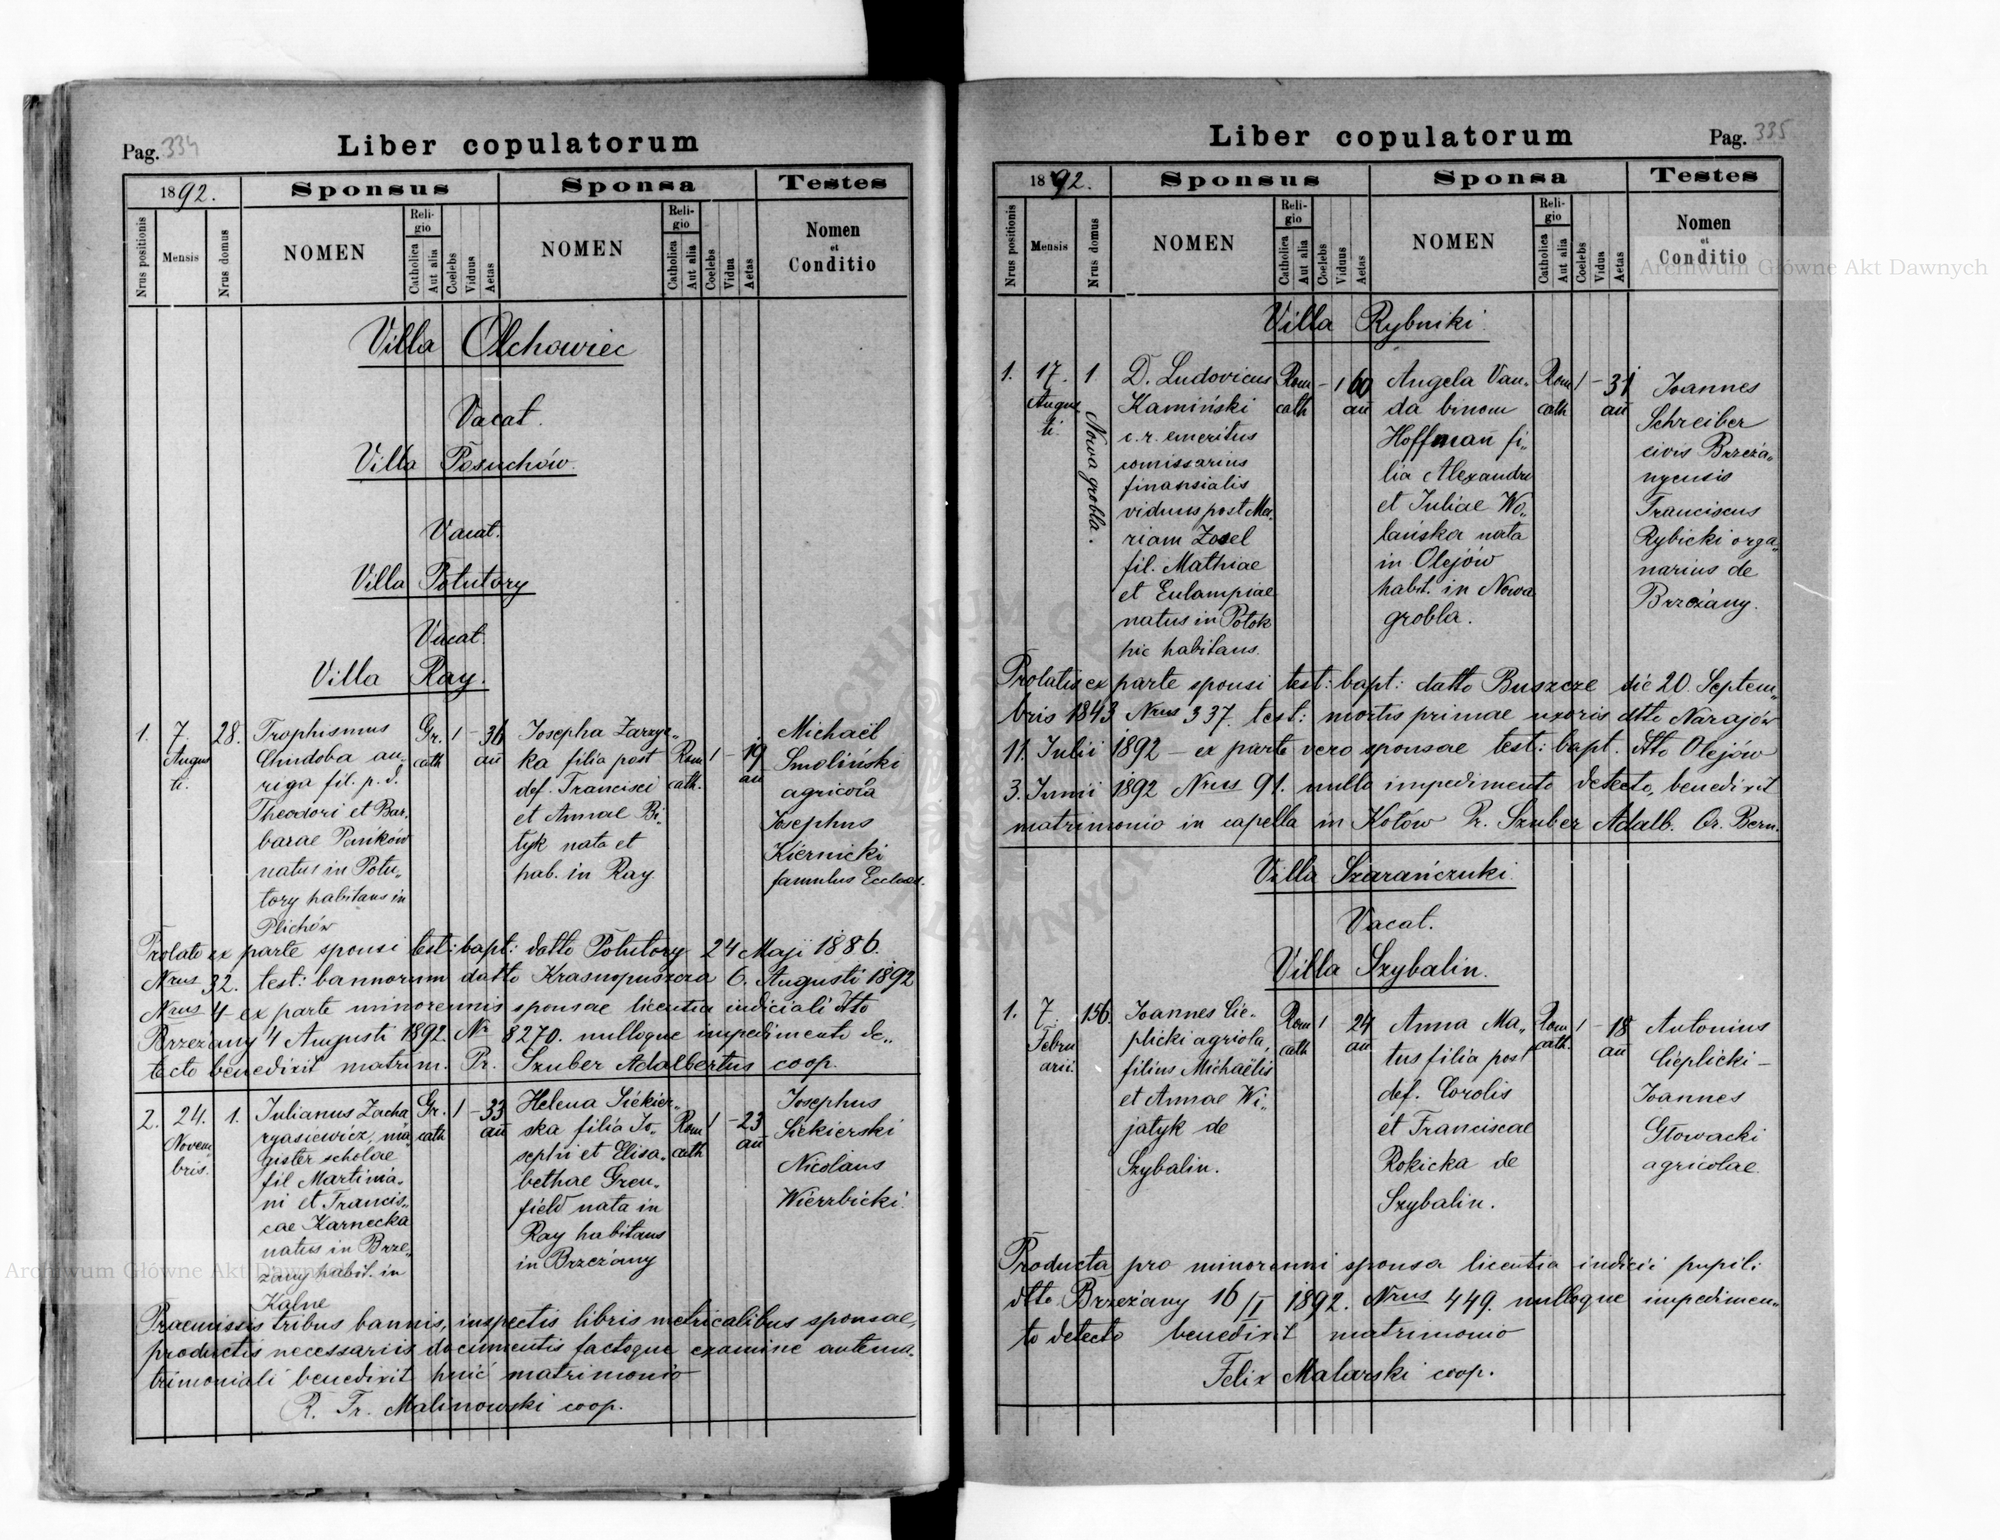 Pag. 334
Liber copulatorum
1892.
Sponsus
Sponsa
Testes
Nrus positionis
Mensis
Nrus domus
NOMEN
Religio
Catholica
Aut alia
Coelebs
Viduus
Aetas
NOMEN
Religio
Catholica
Aut alia
Coelebs
Vidua
Aetas
Nomen
et
Conditio
Villa Olchowiec
Vacat.
Villa Posuchów.
Vacat.
Villa Potutory
Vacat.
Villa Ray.
1.
7.
Augus
ti.
28.
Trophismus
Chudoba au-
riga fil. p. d.
Theodori et Bar,
barae Panków
natus in Potu-
tory habitans in
Plichów
Gr.
cath
1
-
36
an
Josepha Zarzyc-
ka filia post
def. Francisci
et Annae Bi-
tyk nata et
hab. in Ray
Rom
cath.
1
-
19
an
Michaël
Smoliński
agricola
Josephus
Kiernicki
famulus Eccles.
Prolato ex parte sponsi test: bapt: datto Potutory 24 Maji 1886.
Nrus 32. test: bannorum datto Krasnopuszcza 6. Augusti 1892
Nrus 4 ex parte minorennis sponsae licentia iudiciali dtto
Brzeżany 4 Augusti 1892. Nr 8270. nulloque impedimento de-
tecto benedixit matrim. Pr. Szuber Adalbertus coop.
2.
24.
Novem
bris.
1.
Julianus Zacha
ryasiewicz, ma
gister scholae
fil Martinia-
ni et Francis-
cae Karnecka
natus in Brze-
żany habit. in
Kalne
Gr.
cath
1
-
33
an
Helena Siekier-
ska filia Jo-
sephi et Elisa-
bethae Gren-
field nata in
Ray habitans
in Brzeżany
Rom
cath
1
-
23
an
Josephus
Siekierski
Nicolaus
Wierzbicki.
Praemissis tribus bannis, inspectis libris metricalibus sponsae,
productis necessariis documentis factoque examine antema-
trimoniali benedixit huic matrimonio
R. Fr. Malinowski coop.
Liber copulatorum
Pag. 335
1892.
Sponsus
Sponsa
Testes
Nrus positionis
Mensis
Nrus domus
NOMEN
Religio
Catholica
Aut alia
Coelebs
Viduus
Aetas
NOMEN
Religio
Catholica
Aut alia
Coelebs
Vidua
Aetas
Nomen
et
Conditio
Villa Rybniki.
1.
17.
Augus
ti.
1
Nowa grobla.
D. Ludovicus
Kamiński
c. r. emeritus
comissarius
finansialis
viduus post Ma-
riam Zosel
fil. Mathiae
et Eulampiae
natus in Potok
hic habitans.
Rom
cath
-
1
60
an
Angela Van-
da binom
Hoffman fi-
lia Alexandri
et Juliae Wo-
lańska nata
in Olejów
habit. in Nowa
grobla.
Rom
cath
1
-
31
an
Joannes
Schreiber
civis Brzeża-
nyensis
Franciscus
Rybicki orga-
narius de
Brzeżany.
Prolatis ex parte sponsi test: bapt: datto Buszcze die 20. Septem-
bris 1843 Nrus 337. test: mortis primae uxoris dtto Narajów
11. Julii 1892 - ex parte vero sponsae test: bapt. dtto Olejów
3. Junii 1892 Nrus 91. nullo impedimento detecto, benedixit
matrimonio in capella in Kotów Pr. Szuber Adalb. Or. Bern.
Villa Szarańczuki.
Vacat.
Villa Szybalin.
1.
7.
Febru
arii.
156.
Joannes Cie-
plicki agriola,
filius Michaëlis
et Annae Wi-
jatyk de
Szybalin.
Rom
cath
1
24
an
Anna Ma-
tus filia post
def. Corolis
et Franciscae
Rokicka de
Szybalin.
Rom
cath.
1
-
18
an
Antonius
Cieplicki -
Joannes
Głowacki
agricolae.
Producta pro minorenni sponsa licentia iudicii pupil:
dtto Brzeżany 16/I 1892. Nrus 449. nulloque impedimen-
to detecto benedixit matrimonio
Felix Malarski coop.
Archiwum Główne Akt Dawnych
Archiwum Główne Akt Dawnych